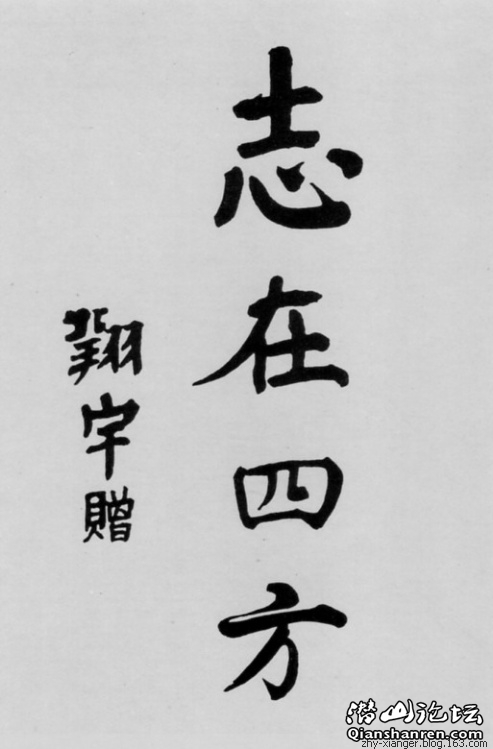 志在四方
翔宇贈
潜山论坛
Qianshanren.com
zhy-xianger.blog.163.com